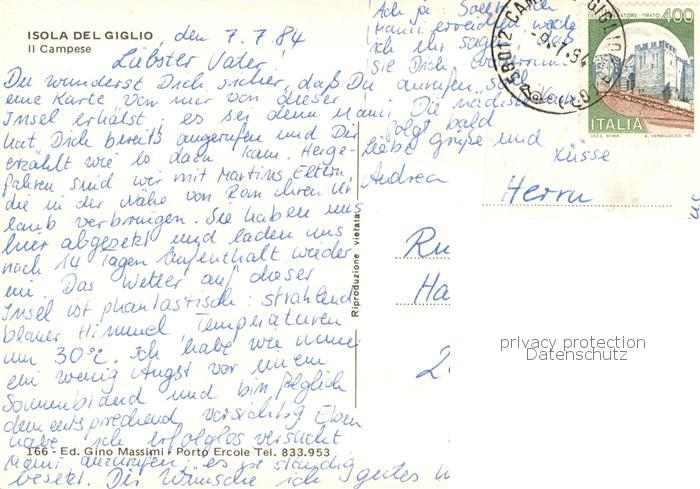 ISOLA DEL GIGLIO, den 7.7.84
Il Campese
Liebster Vater,
Du wunderst Dich sicher, daß Du
eine Karte von mir von dieser
Insel erhälst, es sei denn Mami
hat Dich bereits angerufen und Dir
erzählt wie es dazu kam. Herge-
fahren sind wir mit Martins Eltern,
die in der Nähe von Rom ihren Ur
laub verbringen. Sie haben uns
hier abgesetzt und laden uns
nach 14 Tagen Aufenthalt wieder
ein. Das Wetter auf dieser
Insel ist phantastisch: strahlend
blauer Himmel, Temperaturen
um 30°C. Ich habe wie immer
ein wenig Angst vor einem
Sonnenbrand und bin folglich
dementsprechend vorsichtig. Eben
habe ich erfolglos versucht
Mami anzurufen; es ist ständig
besetzt. Dir wünsche ich gutes
166 - Ed. Gino Massimi - Porto Ercole Tel. 833.953
Riproduzione vietata
Ach ja: Sollte ich
Mami erreichen, werde
ich ihr sagen, daß
sie Dich
anrufen soll.
Die nächste Karte
folgt bald
Liebe Grüße und
Küsse
Andrea
58012 CAMPESE
9.7.84
400
ITALIA
I.P.Z.S. ROMA
Herrn
Ru
Ha
2
privacy protection
Datenschutz